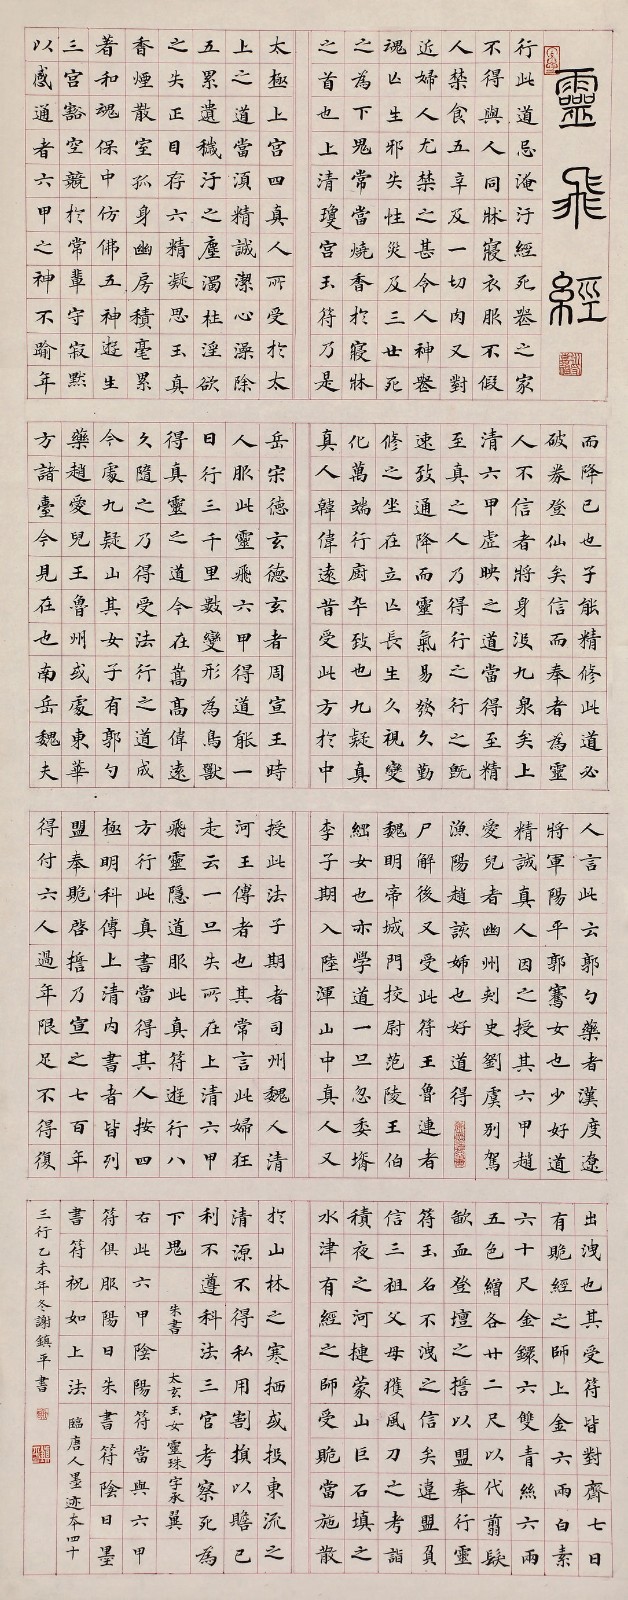 靈飛經
行此道忌淹汙經死喪之家
不得與人同牀寢衣服不假
人禁食五辛及一切肉又對
近婦人尤禁之甚令人神喪
魂亡生邪失性災及三世死
之為下鬼常當燒香於寢牀
之首也上清瓊宮玉符乃是
太極上宮四真人所受於太
上之道當須精誠潔心澡除
五累遺穢汙之塵濁杜淫欲
之失正目存六精凝思玉真
香煙散室孤身幽房積毫累
著和魂保中仿佛五神遊生
三宮豁空競於常輩守寂默
以感通者六甲之神不踰年
而降己也子能精修此道必
破券登仙矣信而奉者為靈
人不信者將身沒九泉矣上
清六甲虛映之道當得至精
至真之人乃得行之行之既
速致通降而靈氣易發久勤
修之坐在立亡長生久視變
化萬端行廚卒致也九疑真
真人韓偉遠昔受此方於中
岳宋德玄德玄者周宣王時
人服此靈飛六甲得道能一
日行三千里數變形為鳥獸
得真靈之道今在嵩高偉遠
久隨之乃得受法行之道成
今處九疑山其女子有郭勺
藥趙愛兒王魯州或處東華
方諸臺今見在也南岳魏夫
人言此云郭勺藥者漢度遼
將軍陽平郭騫女也少好道
精誠真人因之授其六甲趙
愛兒者幽州刺史劉虞別駕
漁陽趙該姊也好道得
尸解後又受此符王魯連者
魏明帝城門校尉范陵王伯
綱女也亦學道一旦忽委壻
李子期入陸渾山中真人又
授此法子期者司州魏人清
河王傳者也其常言此婦狂
走云一旦失所在上清六甲
飛靈隱道服此真符遊行八
方行此真書當得其人按四
極明科傳上清內書者皆列
盟奉贄啓誓乃宣之七百年
得付六人過年限足不得復
出洩也其受符皆對齊七日
有贄經之師上金六兩白素
六十尺金鐶六雙青絲六兩
五色繒各廿二尺以代翦髮
歃血登壇之誓以盟奉行靈
符玉名不洩之信矣違盟負
信三祖父母獲風刀之考詣
積夜之河揵蒙山巨石填之
水津有經之師受贄當施散
於山林之寒栖或投東流之
清源不得私用割損以贍己
利不遵科法三官考察死為
下鬼 朱書 太玄玉女靈珠字承翼
右此六甲陰陽符當與六甲
符俱服陽日朱書符陰日墨
書符祝如上法 臨唐人墨迹本四十
三行乙未年冬謝鎮平書